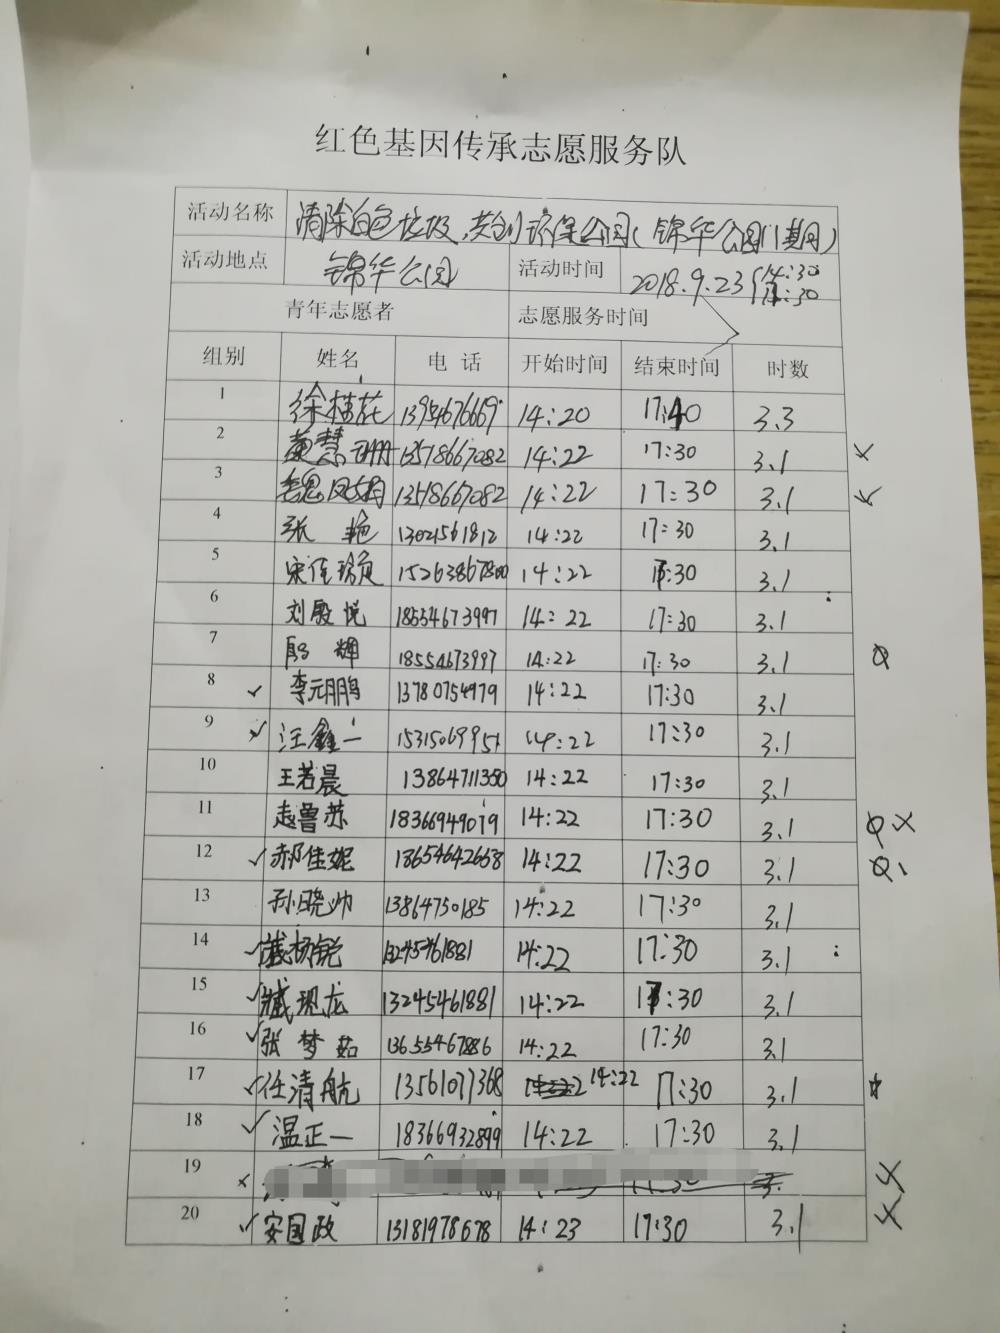 红色基因传承志愿服务队
活动名称 清除白色垃圾,共创环保公园(锦华公园11期)
活动地点 锦华公园 活动时间 2018.9.23 14:30
青年志愿者 志愿服务时间
组别 姓名 电话 开始时间 结束时间 时数
1 徐桂花 13954676669 14:20 17:40 3.3
2 黄慧珊 13518667082 14:22 17:30 3.1
3 魏凤娟 13518667082 14:22 17:30 3.1
4 张艳 13021561812 14:22 17:30 3.1
5 宋佳 14:22 17:30 3.1
6 刘殷悦 18554673997 14:22 17:30 3.1
7 殷辉 18554673997 14:22 17:30 3.1
8 李元鹏 13780754979 14:22 17:30 3.1
9 汪鑫一 14:22 17:30 3.1
10 王若晨 14:22 17:30 3.1
11 赵鲁苏 18366949019 14:22 17:30 3.1
12 郝佳妮 18654642668 14:22 17:30 3.1
13 孙晓帅 13864750185 14:22 17:30 3.1
14 臧杨锐 13245461881 14:22 17:30 3.1
15 臧现龙 13245461881 14:22 17:30 3.1
16 张梦茹 13655467886 14:22 17:30 3.1
17 任清航 13561077368 14:22 17:30 3.1
18 温正一 18366932899 14:22 17:30 3.1
19
20 安国政 13181978678 14:23 17:30 3.1